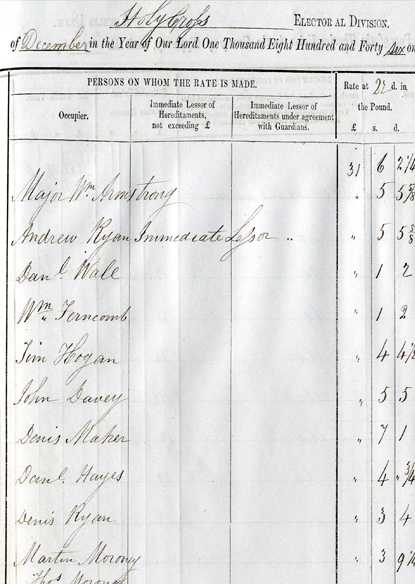 Holy Cross ELECTORAL DIVISION.
of December in the Year of Our Lord One Thousand Eight Hundred and Forty six on
PERSONS ON WHOM THE RATE IS MADE.
Rate at d. in
the Pound.
Occupier.
Immediate Lessor of
Hereditaments,
not exceeding £
Immediate Lessor of
Hereditaments under agreement
with Guardians.
£ s. d.
31 6 2 1/4
Major Wm Armstrong „ 5 5
Andrew Ryan Immediate Lessor „ „ 5 5
Danl. Wale „ 1 2
Wm Ferncomb „ 1 2
Tim Hogan „ 4 4
John Davey „ 5 5
Denis Maher „ 7 1
Danl. Hayes „ 4 „ 3/4
Denis Ryan „ 3 4
Martin Moroney „ 3 9
Thos Moroney